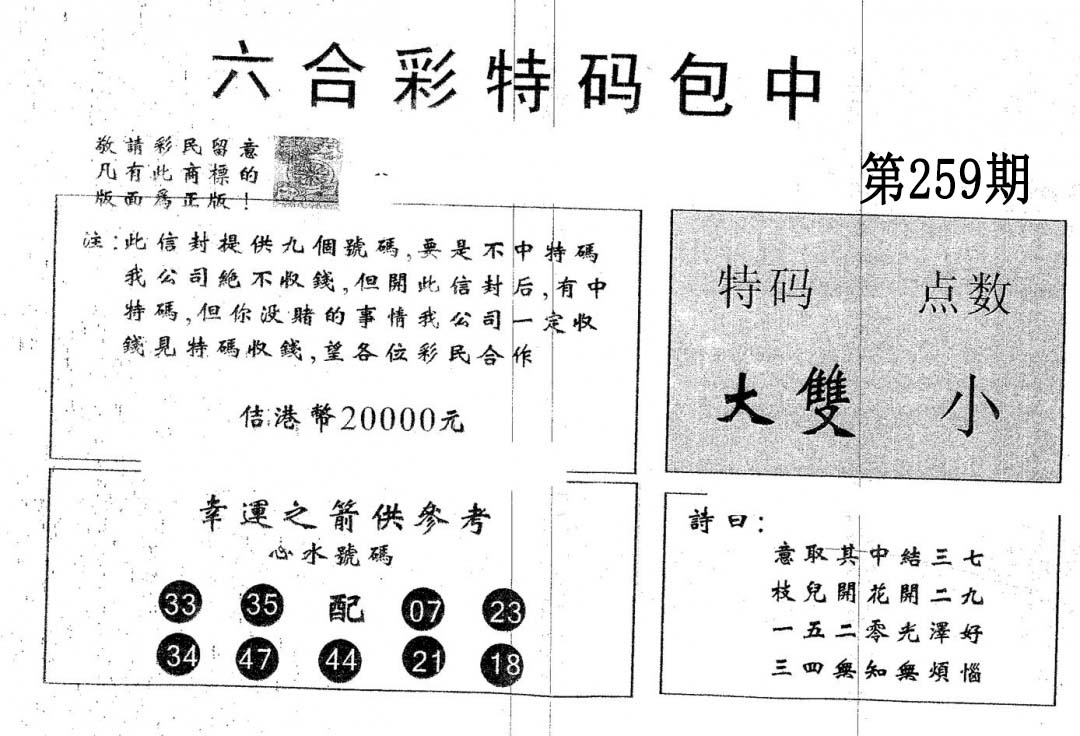 六合彩特码包中
敬請彩民留意
凡有此商標的
版面爲正版！
第259期
注：此信封提供九個號碼，要是不中特碼
我公司絶不收錢，但開此信封后，有中
特碼，但你没賭的事情我公司一定收
錢見特碼收錢，望各位彩民合作
佶港幣20000元
特码 点数
大雙 小
幸運之箭供參考
心水號碼
33 35 配 07 23
34 47 44 21 18
詩曰：
意取其中結三七
枝兒開花開二九
一五二零光澤好
三四無知無煩惱